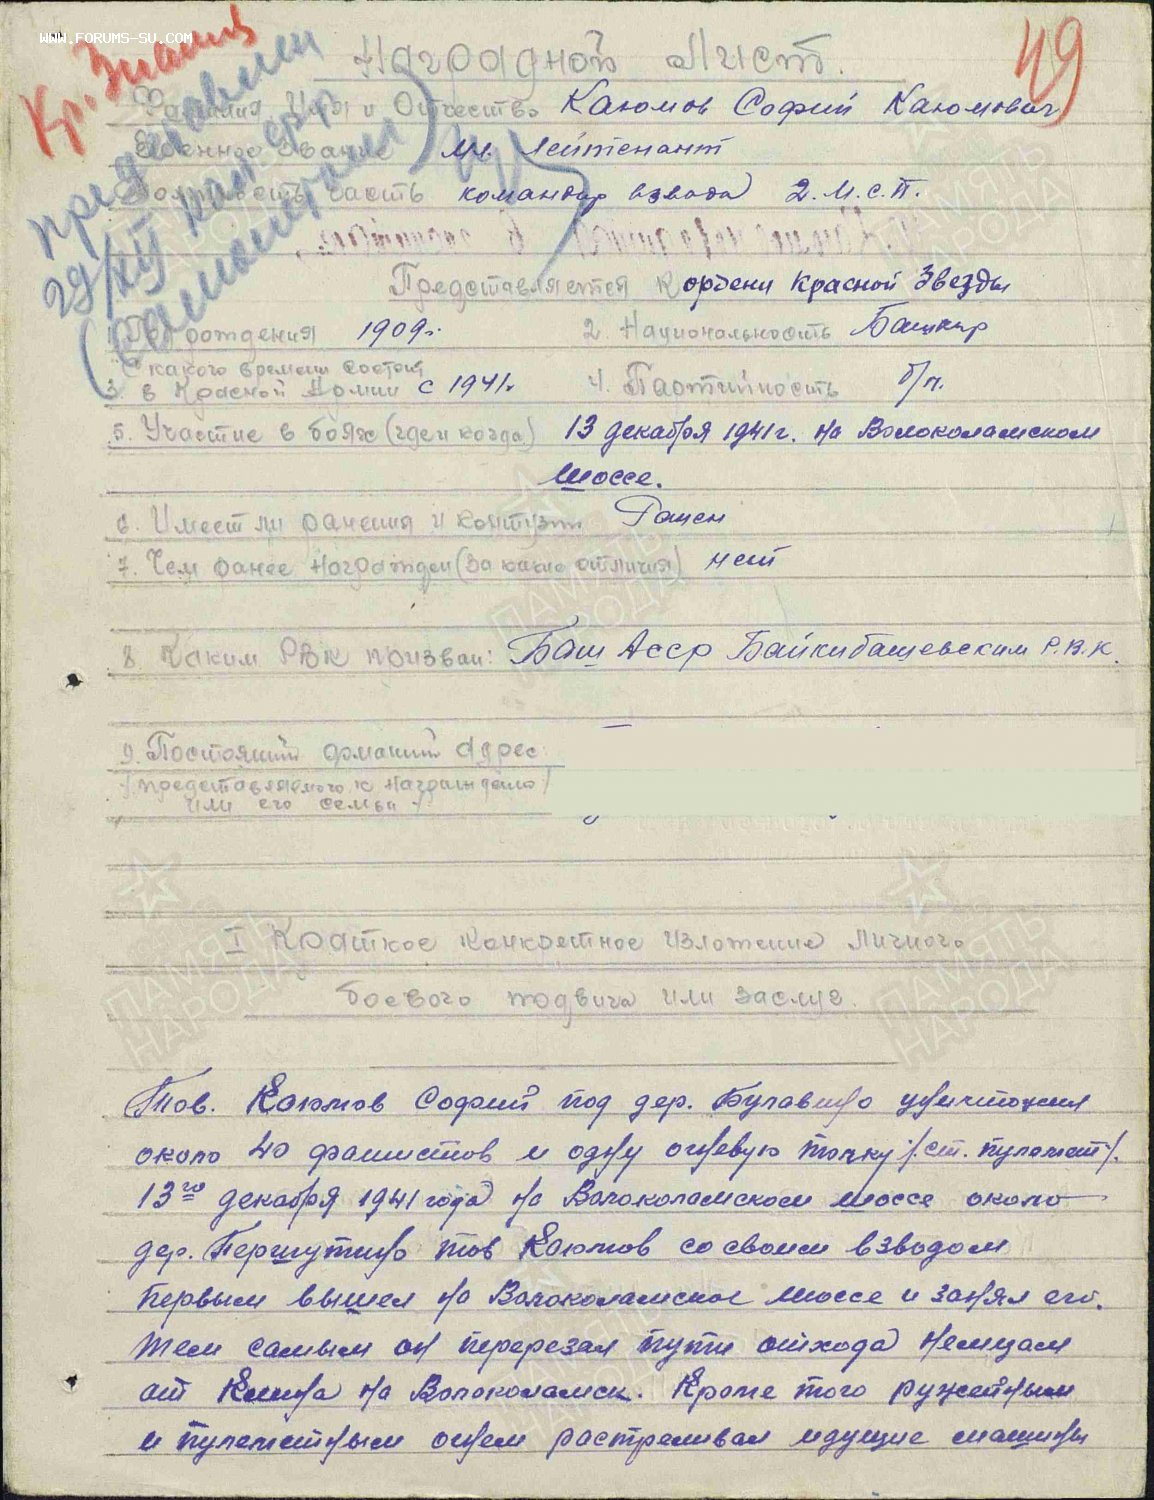 WWW.FORUMS-SU.COM
Кр. Знамя
49
Наградной Лист.
Фамилия Имя и Отчество Каюмов Софий Каюмович
Военное звание мл. лейтенант
Должность часть командир взвода 2. М.С.П.
Представляется к ордени Красной Звезды
1. Год рождения 1909г. 2 Национальность Башкир
С какого времени состоит
3. в Красной Армии с 1941г. 4. Партийность б/п.
5. Участие в боях (где и когда) 13 декабря 1941г. на Волоколамском
шоссе.
6. Имеет ли ранения и контузии Ранен
7. Чем ранее награжден (за какие отличия) нет
8 Каким РВК призван: Баш Асср Байкибашевским Р.В.К.
9. Постоянный домашний адрес
(представляемого к награждению
или его семьи)
I Краткое конкретное изложение личного
боевого подвига или заслуг.
Тов. Каюмов Софий под дер. Булавино уничтожил
около 40 фашистов и одну огневую точку /ст. пулемет/.
13го декабря 1941 года на Волоколамском шоссе около
дер. Першутино тов Каюмов со своим взводом
первым вышел на Волоколамское шоссе и занял его.
тем самым он перерезал пути отхода немцам
от Клина на Волоколамск. Кроме того ружейным
и пулеметным огнем расстреливал идущие машины
ПАМЯТЬ НАРОДА